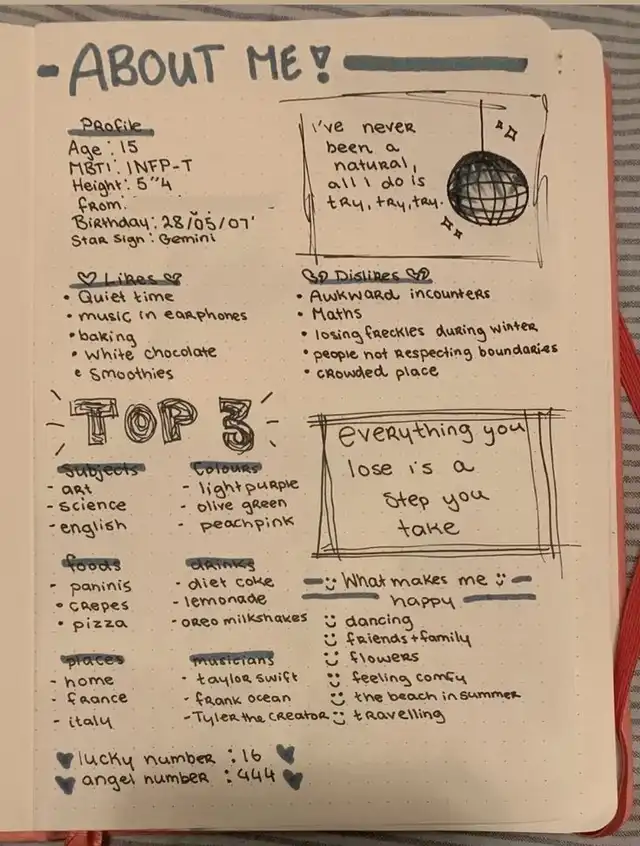 - ABOUT ME!
Profile
Age: 15
MBTI: INFP-T
Height: 5"4
from:
Birthday: 28/05/07'
Star Sign: Gemini
I've never
been a
natural,
all I do is
try, try, try.
Likes
• Quiet time
• music in earphones
• baking
• white chocolate
• Smoothies
Dislikes
• Awkward incounters
• Maths
• losing freckles during winter
• people not respecting boundaries
• crowded place
TOP 3
Subjects
- art
- science
- english
Colours
- light purple
- olive green
- peach pink
everything you
lose is a
step you
take
foods
- paninis
• crepes
• pizza
drinks
- diet coke
- lemonade
- oreo milkshakes
What makes me
happy
dancing
friends + family
flowers
feeling comfy
the beach in summer
travelling
places
- home
- france
- italy
musicians
- taylor swift
- frank ocean
- Tyler the Creator
lucky number : 16
angel number : 444